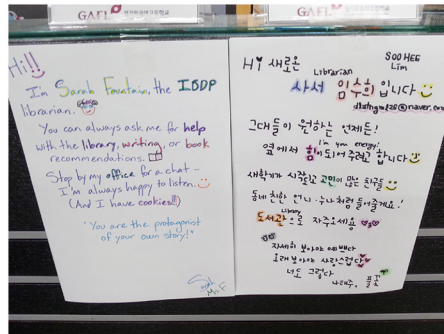 GAFL
GAFL
Hi!!
I'm Sarah Fountain, the IBDP
librarian.
You can always ask me for help
with the library, writing, or book
recommendations.
Stop by my office for a chat -
I'm always happy to listen.
(And I have cookies!!)
"You are the protagonist
of your own story!"
Hi 새로운
SOO HEE
Lim
Librarian
사서 임수희 입니다
그대들이 원하는 언제든!
i'm you energy!
옆에서 힘이 되어 주려고 합니다
새학기가 시작되고 고민이 많은 친구들
동네 친한 언니·누나처럼 들어줄게요!
Library
도서관으로 자주오세용
자세히 보아야 예쁘다
오래 보아야 사랑스럽다
너도 그렇다
나태주, 풀꽃